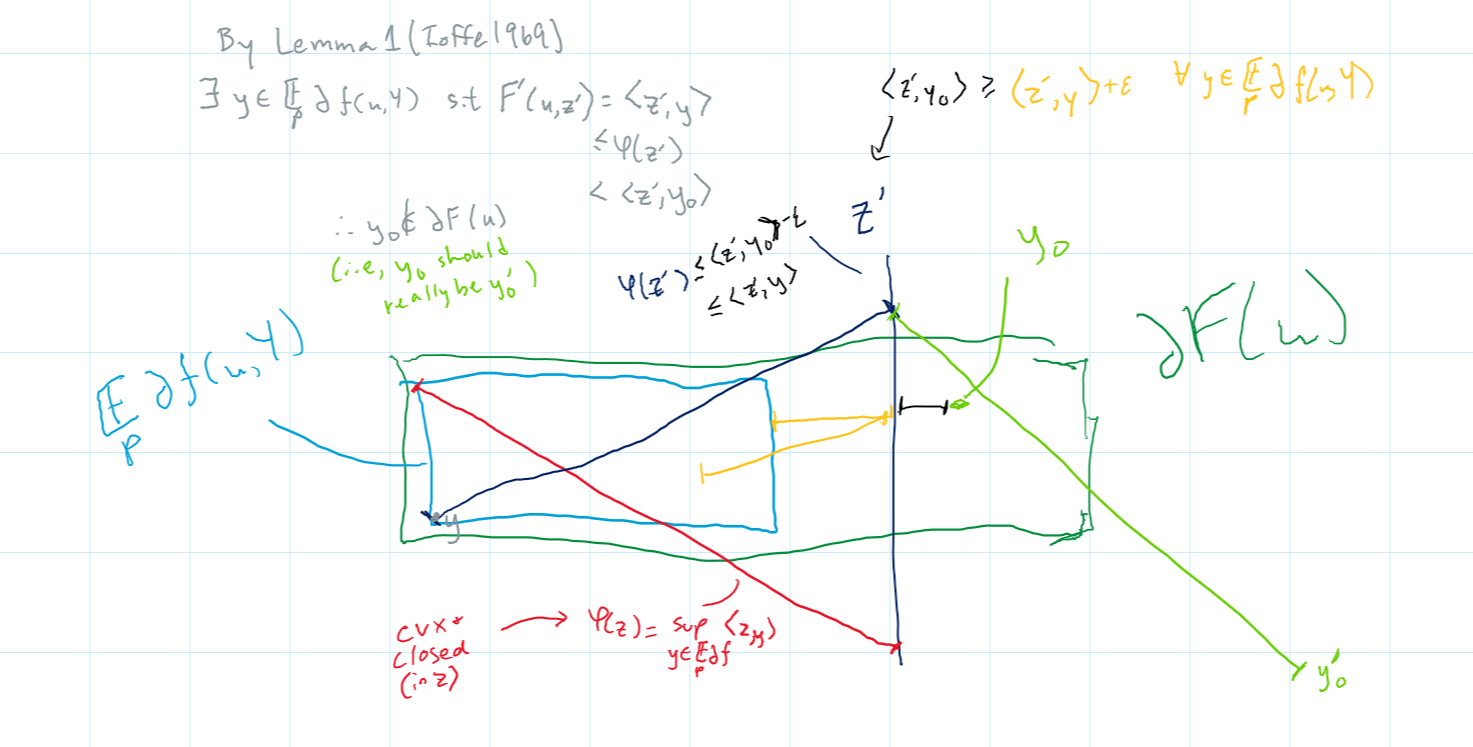 By Lemma 1 (Ioffe 1969)
∃ y ∈ 𝔼_p ∂f(u,Y) s.t F'(u,z') = ⟨z',y⟩
≤ φ(z')
< ⟨z',y₀⟩
∴ y₀ ∉ ∂F(u)
(i.e, y₀ should
really be y₀')
⟨z',y₀⟩ ≥ ⟨z',y⟩+ε ∀ y ∈ 𝔼_p ∂f(u,Y)
z'
φ(z') ≤ ⟨z',y₀⟩-ε
≤ ⟨z',y⟩
y₀
∂F(u)
𝔼_p ∂f(u,Y)
y
cvx+
closed
(in z)
φ(z) = sup ⟨z,y⟩
y∈𝔼_p ∂f
y₀'